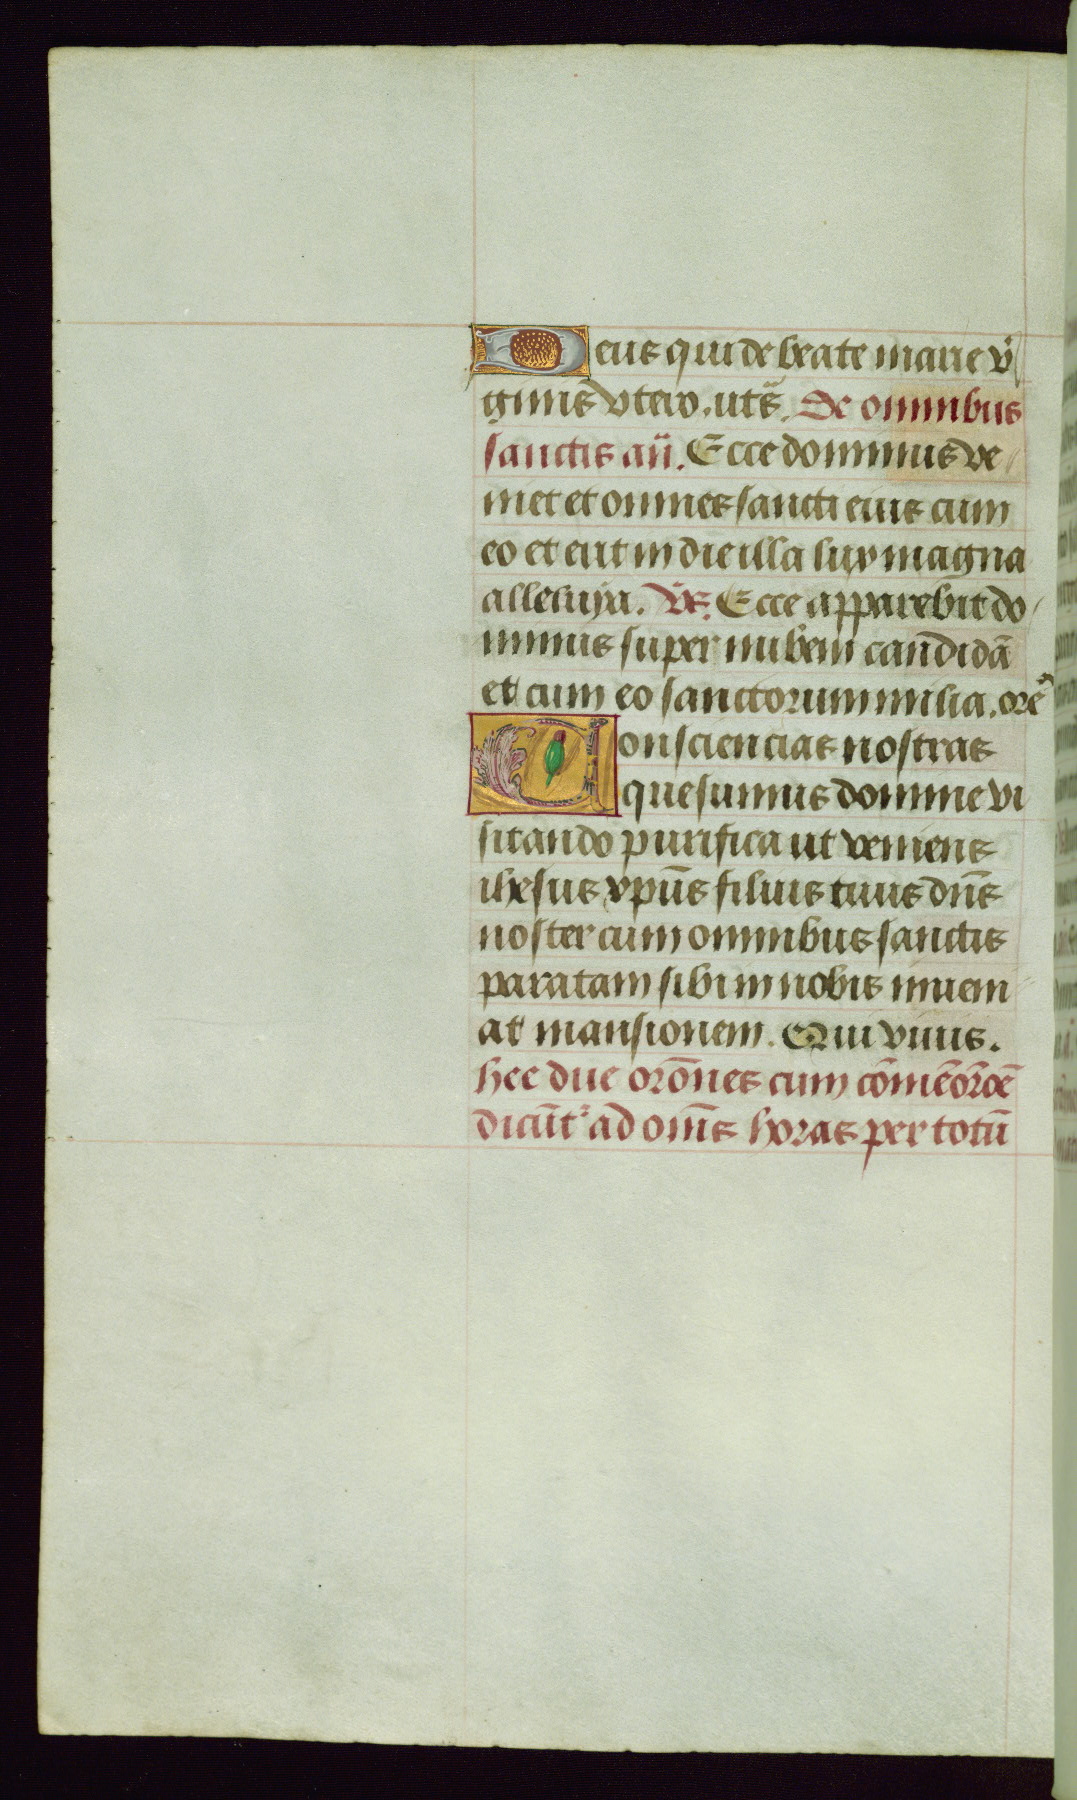 Deus qui de beate marie v̄
ginis vtero. utˢ. De omnibus
sanctis an̄. Ecce dominus ve
niet et omnes sancti eius cum
eo et erit in die illa lux magna
alleluya. V̄s. Ecce apparebit do
minus super nubem candidā
et cum eo sanctorum milia. orō
Consciencias nostras
quesumus domine vi
sitando purifica ut veniens
ihesus xp̄us filius tuus dn̄s
noster cum omnibus sanctis
paratam sibi in nobis inueni
at mansionem. Qui viuis.
hec due orōnes cum cōmēorōe
dicūt᷑ ad om̄s horas per totū